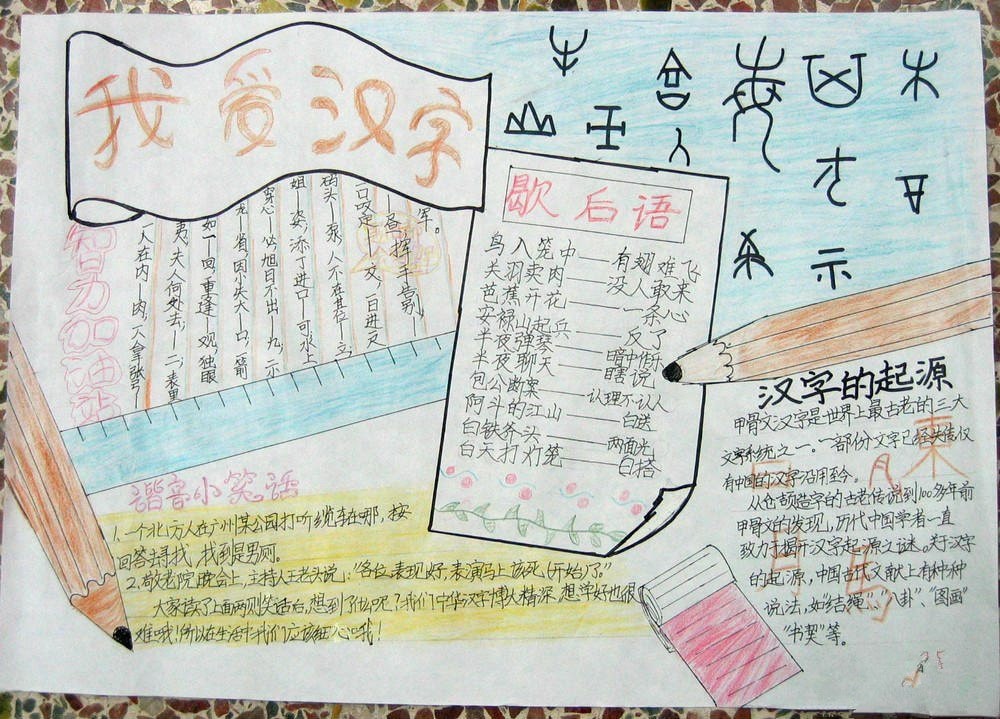 我爱汉字
智力加油站
一人在内—肉,一人拿张弓—
夷,夫人何处去,—二,表里
如一—回,重逢—观,独眼
龙—省,因小失大—口,箭
穿心—必,旭日不出—九,二小
姐—姿,添丁进口—可,水上
码头—泵,人不在其位—立,
一口咬定—交,一日进
—昼,挥手告别—
军。
歇后语
鸟入笼中——有翅难飞
关羽卖肉——没人敢来
芭蕉开花——一条心
安禄山起兵——反了
半夜弹琴——暗中作乐
半夜聊天——瞎说
包公断案——认理不认人
阿斗的江山——白送
白铁斧头——两面光
白天打灯笼——白搭
谐音小笑话
1.一个北方人在广州某公园打听缆车在哪,按
回答去寻找,找到是男厕。
2.敬老院晚会上,主持人王老头说:“各位表现好,表演马上该死(开始)了。”
大家读了上面两则笑话后,想到了什么呢?我们中华汉字博大精深,想学好也很
难哦!所以在生活中我们应该细心哦!
汉字的起源
甲骨文汉字是世界上最古老的三大
文字系统之一。一部份文字已经失传仅
有中国的汉字沿用至今。
从仓颉造字的古老传说到100多年前
甲骨文的发现,历代中国学者一直
致力于揭开汉字起源之谜。关于汉字
的起源,中国古代文献上有种种
说法,如“结绳”、“八卦”、“图画”
“书契”等。